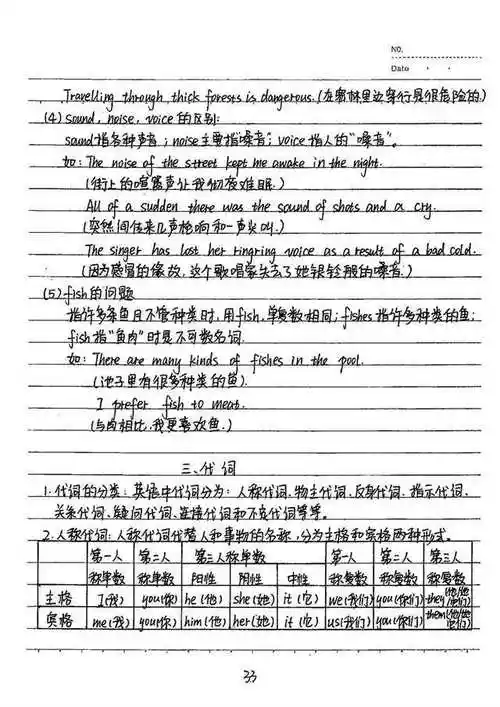 NO.
Date
Travelling through thick forests is dangerous.(在密林里边穿行是很危险的.)
(4) sound, noise, voice 的区别:
sound指各种声音;noise主要指噪音;voice指人的"嗓音"。
如: The noise of the street kept me awake in the night.
(街上的喧嚣声让我彻夜难眠.)
All of a sudden there was the sound of shots and a cry.
(突然间传来几声枪响和一声尖叫.)
The singer has lost her ringring voice as a result of a bad cold.
(因为感冒的缘故,这个歌唱家失去了她银铃般的嗓音.)
(5) fish的问题
指许多条鱼且不管种类时,用fish,单复数相同;fishes指许多种类的鱼;
fish指"鱼肉"时是不可数名词.
如: There are many kinds of fishes in the pool.
(池子里有很多种类的鱼).
I prefer fish to meat.
(与肉相比,我更喜欢鱼.)
三、代词
1.代词的分类: 英语中代词分为: 人称代词、物主代词、反身代词、指示代词、
关系代词、疑问代词、连接代词和不定代词等等。
2.人称代词: 人称代词代替人和事物的名称,分为主格和宾格两种形式。
第一人称单数 第二人称单数 第三人称单数 第一人称复数 第二人称复数 第三人称复数
阳性 阴性 中性
主格 I(我) you(你) he(他) she(她) it(它) we(我们) you(你们) they(他/她/它们)
宾格 me(我) you(你) him(他) her(她) it(它) us(我们) you(你们) them(他/她/它们)
33